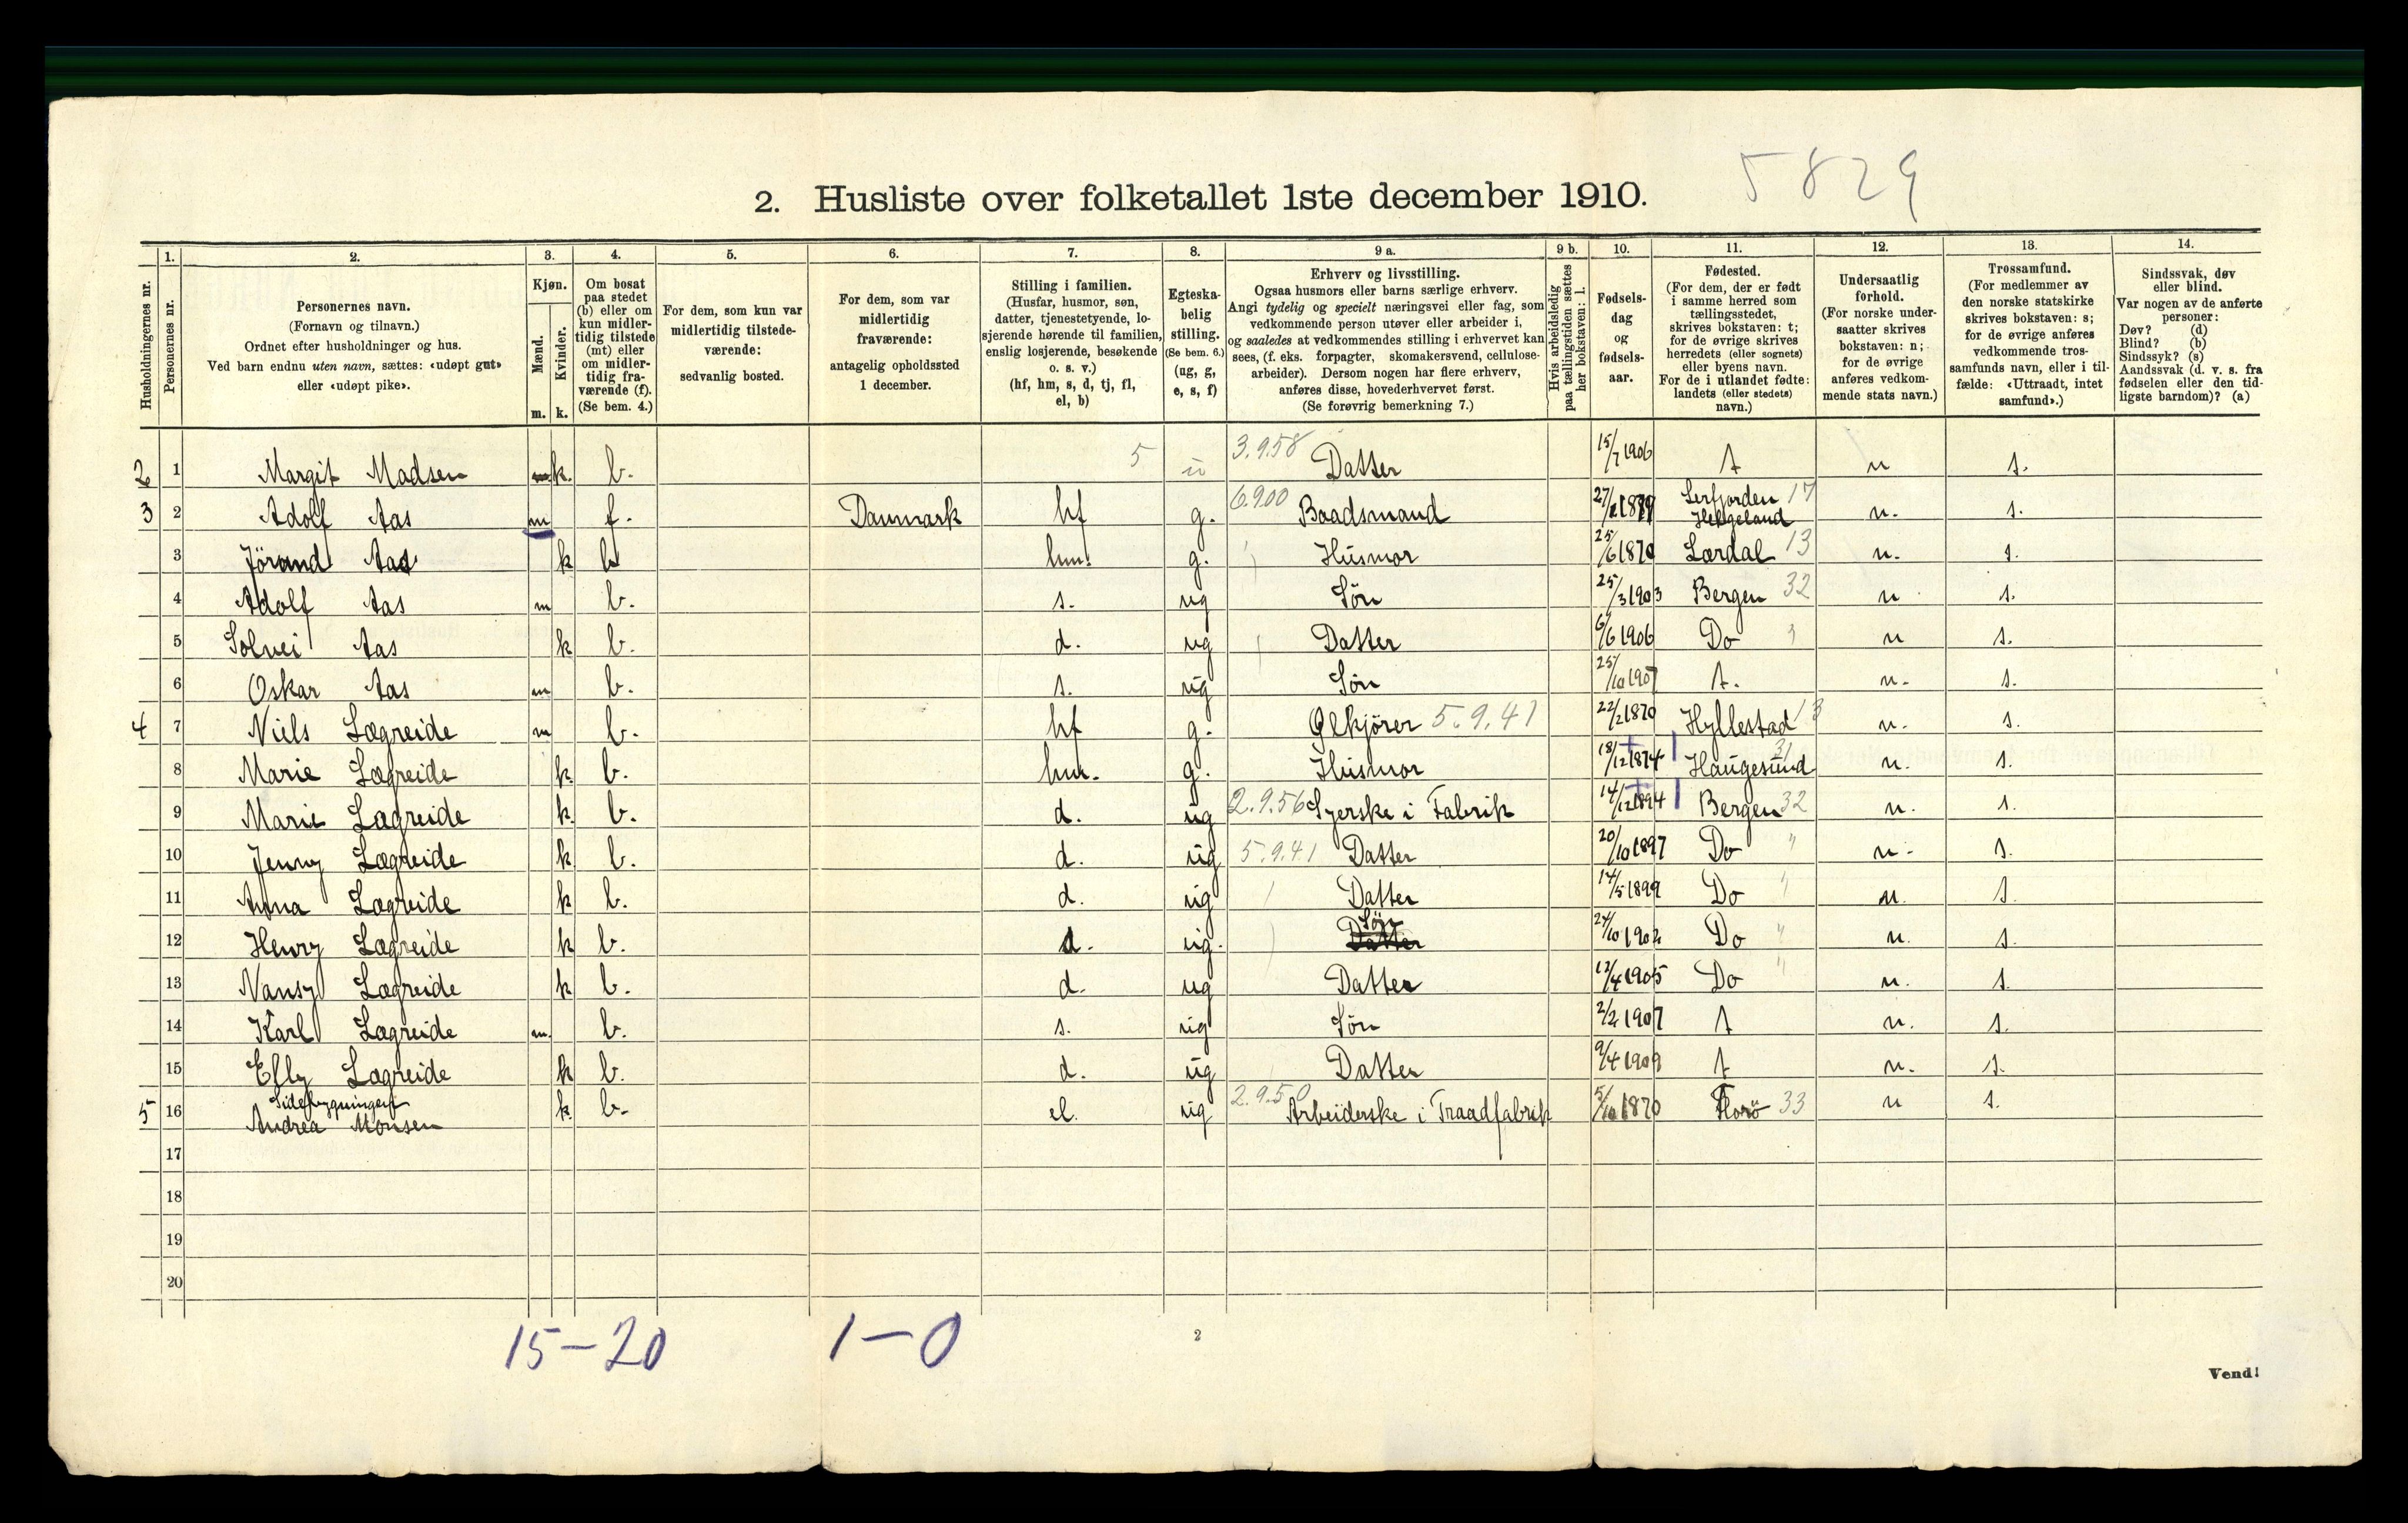 5829
2. Husliste over folketallet 1ste december 1910.
Husholdningernes nr.
1. Personernes nr.
2. Personernes navn.
(Fornavn og tilnavn.)
Ordnet efter husholdninger og hus.
Ved barn endnu uten navn, sættes: «udøpt gut»
eller «udøpt pike».
3. Kjøn.
Mænd. m.
Kvinder. k.
4. Om bosat
paa stedet
(b) eller om
kun midler-
tidig tilstede
(mt) eller
om midler-
tidig fra-
værende (f).
(Se bem. 4.)
5. For dem, som kun var
midlertidig tilstede-
værende:
sedvanlig bosted.
6. For dem, som var
midlertidig
fraværende:
antagelig opholdssted
1 december.
7. Stilling i familien.
(Husfar, husmor, søn,
datter, tjenestetyende, lo-
sjerende hørende til familien,
enslig losjerende, besøkende
o. s. v.)
(hf, hm, s, d, tj, fl,
el, b)
8. Egteska-
belig
stilling.
(Se bem. 6.)
(ug, g,
e, s, f)
9 a. Erhverv og livsstilling.
Ogsaa husmors eller barns særlige erhverv.
Angi tydelig og specielt næringsvei eller fag, som
vedkommende person utøver eller arbeider i,
og saaledes at vedkommendes stilling i erhvervet kan
sees, (f. eks. forpagter, skomakersvend, cellulose-
arbeider). Dersom nogen har flere erhverv,
anføres disse, hovederhvervet først.
(Se forøvrig bemerkning 7.)
9 b. Hvis arbeidsledig
paa tællingstiden sættes
her bokstaven: l.
10. Fødsels-
dag
og
fødsels-
aar.
11. Fødested.
(For dem, der er født
i samme herred som
tællingsstedet,
skrives bokstaven: t;
for de øvrige skrives
herredets (eller sognets)
eller byens navn.
For de i utlandet fødte:
landets (eller stedets)
navn.)
12. Undersaatlig
forhold.
(For norske under-
saatter skrives
bokstaven: n;
for de øvrige
anføres vedkom-
mende stats navn.)
13. Trossamfund.
(For medlemmer av
den norske statskirke
skrives bokstaven: s;
for de øvrige anføres
vedkommende tros-
samfunds navn, eller i til-
fælde: «Uttraadt, intet
samfund».)
14. Sindssvak, døv
eller blind.
Var nogen av de anførte
personer:
Døv? (d)
Blind? (b)
Sindssyk? (s)
Aandssvak (d. v. s. fra
fødselen eller den tid-
ligste barndom)? (a)
2 1 Margit Madsen k. b. 5 3.9.58 Datter 15/7 1906 t n s.
3 2 Adolf Aas m f. Danmark hf g. 6.900 Baadsmand 1879 Helgeland 17 n. s.
3 Jörand Aas k b hm. g. Husmor 25/6 1870 Lærdal 13 n. s.
4 Adolf Aas m b. s. ug Søn 25/3 1903 Bergen 32 n s.
5 Solvei Aas k b. d. ug Datter 6/6 1906 Do n s.
6 Oskar Aas m b. s. ug Søn 25/10 1907 t. n. s.
4 7 Niels Lægreide m b. hf g. Ølkjører 5.9.41 22/2 1870 Hyllestad 13 n. s.
8 Marie Lægreide k. b. hm. g. Husmor 18/12 1874 Haugesund 31 n. s.
9 Marie Lægreide k. b. d. ug 2.9.56 Syerske i Fabrik 14/12 1894 Bergen 32 n. s.
10 Jenny Lægreide k b. d. ug 5.9.41 Datter 20/10 1897 Do " n. s.
11 Anna Lægreide k b. d. ug Datter 14/5 1899 Do " n. s.
12 Henry Lægreide k b. d. ug. Datter Søn 24/10 1902 Do " n. s.
13 Nansy Lægreide k b. d. ug Datter 12/4 1905 Do " n. s.
14 Karl Lægreide m. b. s. ug Søn 2/2 1907 t n. s.
15 Elly Lægreide k b. d. ug Datter 9/4 1909 t n. s.
Sidebygningen
5 16 Andrea Monsen k. b. el. ug 2.9.50 Arbeiderske i Traadfabrik 5/10 1870 Florø 33 n s.
17
18
19
20
15-20 1-0
2
Vend!